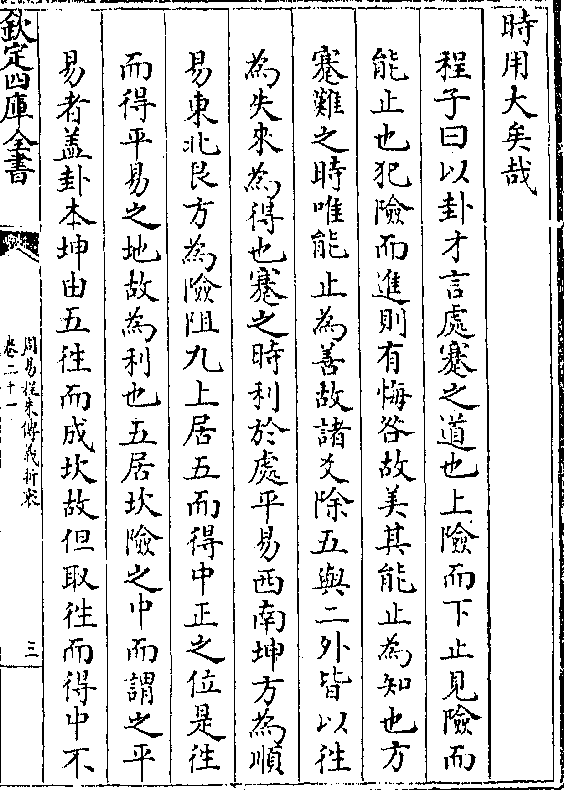 時用大矣哉
程子曰以卦才言處蹇之道也上險而下止見險而
能止也犯險而進則有悔咎故美其能止為知也方
蹇難之時唯能止為善故諸爻除五與二外皆以徃
為失來為得也蹇之時利於處平易西南坤方為順
易東北艮方為險阻九上居五而得中正之位是徃
而得平易之地故為利也五居坎險之中而謂之平
易者盖卦本坤由五徃而成坎故但取徃而得中不
欽定四庫全書
周易程朱傳義折衷
卷二十一
三